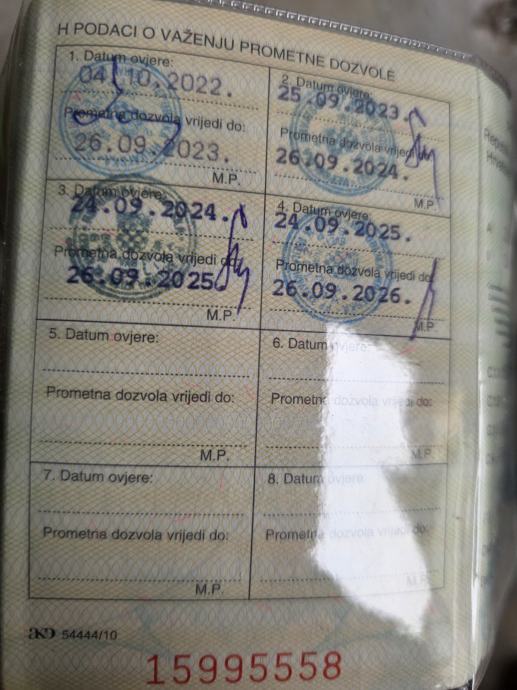 H PODACI O VAŽENJU PROMETNE DOZVOLE
1. Datum ovjere:
04.10.2022.
Prometna dozvola vrijedi do:
26.09.2023.
M.P.
2. Datum ovjere:
25.09.2023.
Prometna dozvola vrijedi do:
26.09.2024.
M.P.
3. Datum ovjere:
24.09.2024.
Prometna dozvola vrijedi do:
26.09.2025.
M.P.
4. Datum ovjere:
24.09.2025.
Prometna dozvola vrijedi do:
26.09.2026.
M.P.
5. Datum ovjere:
Prometna dozvola vrijedi do:
M.P.
6. Datum ovjere:
Prometna dozvola vrijedi do:
M.P.
7. Datum ovjere:
Prometna dozvola vrijedi do:
M.P.
8. Datum ovjere:
Prometna dozvola vrijedi do:
M.P.
AKD 54444/10
15995558